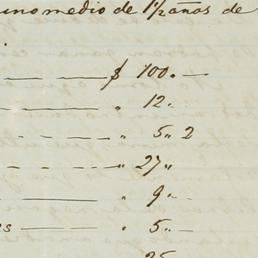 uno medio de 1½ años de
$ 100.. —
" 12..
" 5.. 2
" 27 "
" 9.. —
es — " 5.. —
25